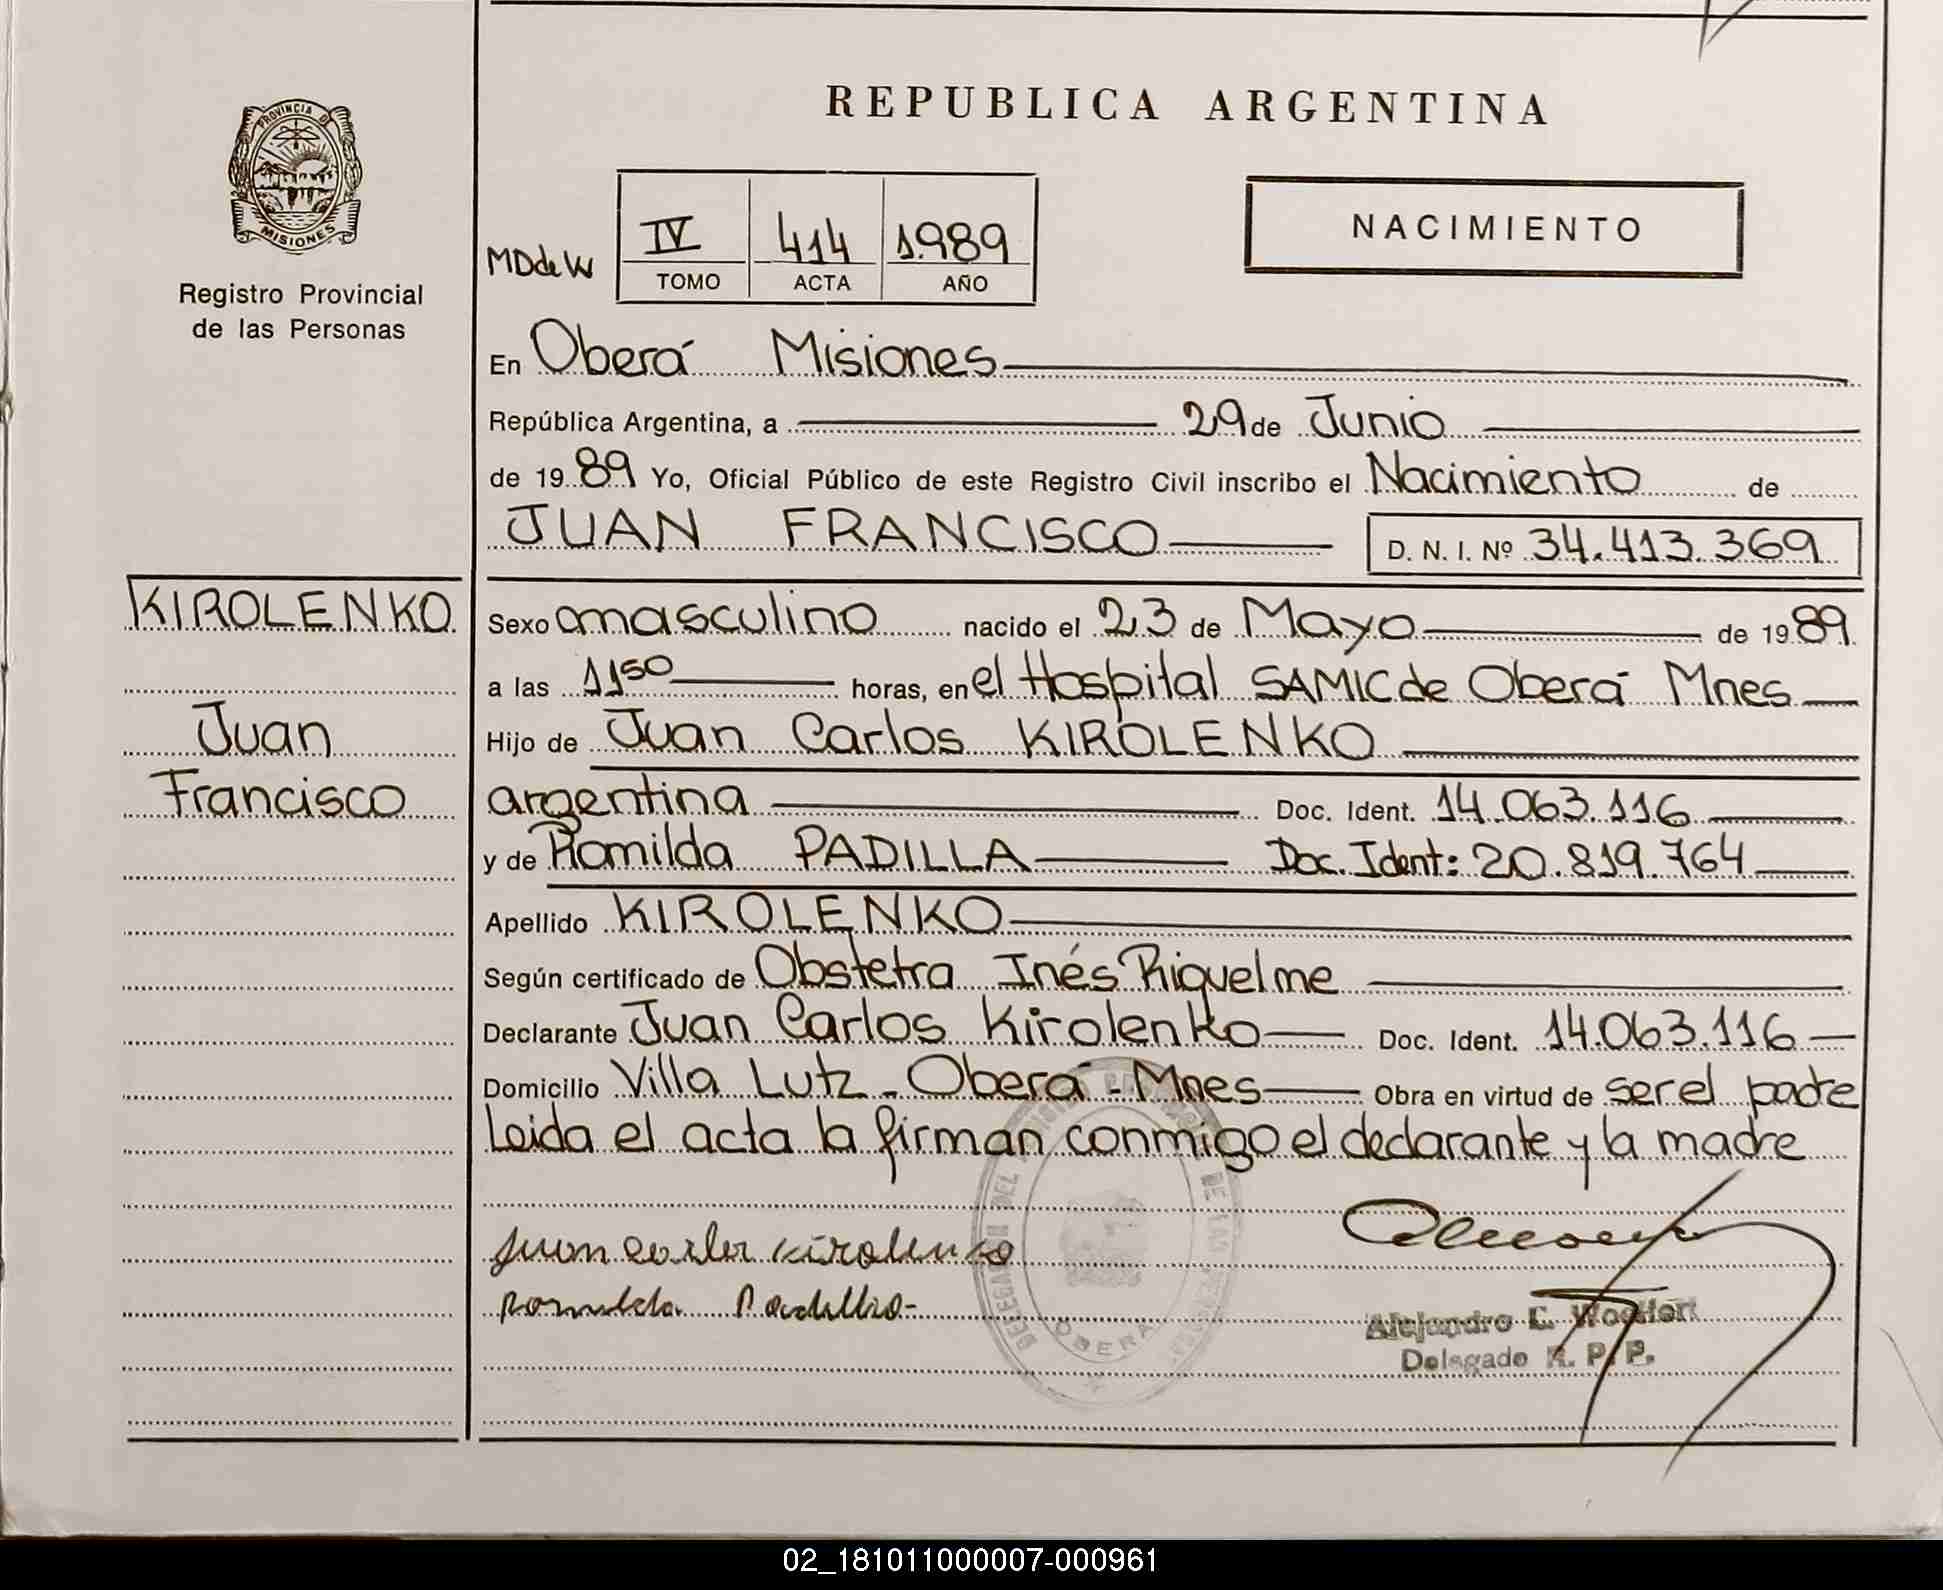 REPUBLICA ARGENTINA
PROVINCIA DE
MISIONES
Registro Provincial
de las Personas
MDdeW
IV 414 1989
TOMO ACTA AÑO
NACIMIENTO
En Oberá Misiones
República Argentina, a 29 de Junio
de 1989 Yo, Oficial Público de este Registro Civil inscribo el Nacimiento de
JUAN FRANCISCO D. N. I. Nº 34.413.369
KIROLENKO
Juan
Francisco
Sexo masculino nacido el 23 de Mayo de 1989
a las 11 50 horas, en el Hospital SAMIC de Oberá Mnes
Hijo de Juan Carlos KIROLENKO
argentina Doc. Ident. 14.063.116
y de Romilda PADILLA Doc. Ident: 20.819.764
Apellido KIROLENKO
Según certificado de Obstetra Inés Riquelme
Declarante Juan Carlos Kirolenko Doc. Ident. 14.063.116
Domicilio Villa Lutz - Oberá - Mnes Obra en virtud de ser el padre
Leida el acta la firman conmigo el declarante y la madre
Juan Carlos Kirolenko
Romilda Padilla
DELEGACION DEL REGISTRO PROVINCIAL DE LAS PERSONAS
OBERA
Alejandro E.
Delegado R. P. P.
02_181011000007-000961